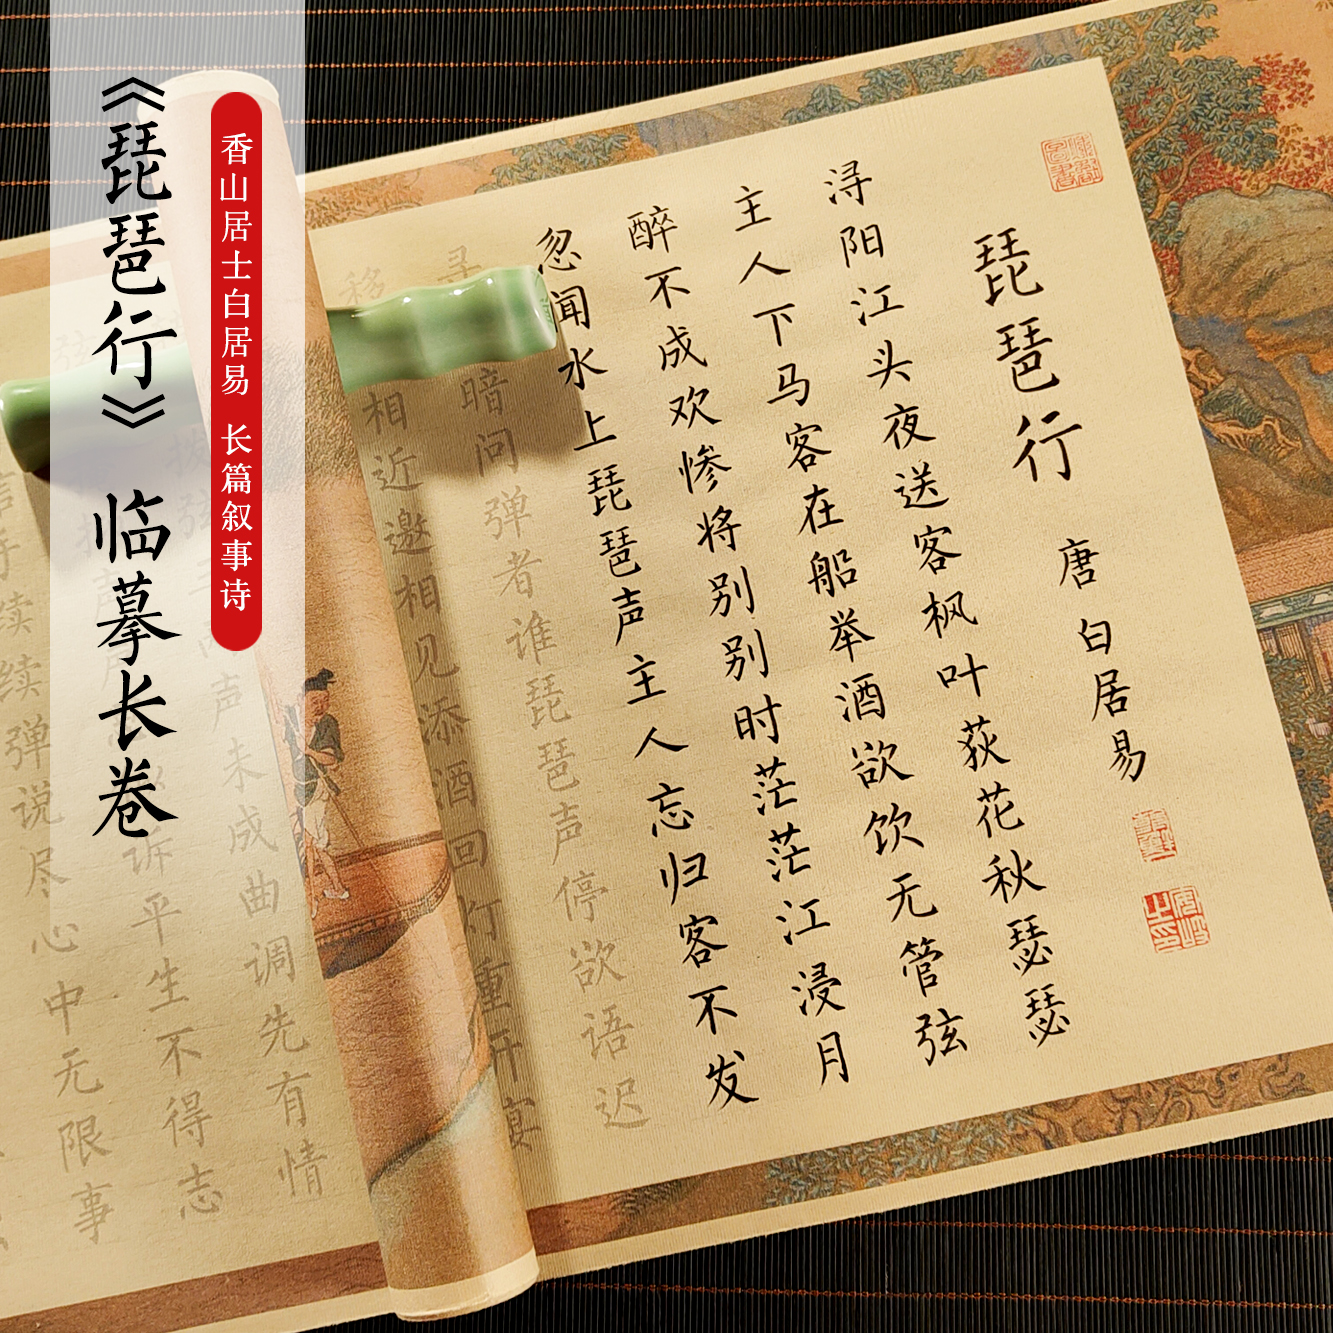 《琵琶行》 临摹长卷
香山居士白居易 长篇叙事诗
琵琶行 唐 白居易
浔阳江头夜送客枫叶荻花秋瑟瑟
主人下马客在船举酒欲饮无管弦
醉不成欢惨将别别时茫茫江浸月
忽闻水上琵琶声主人忘归客不发
寻 暗问弹者谁琵琶声停欲语迟
移 相近邀相见添酒回灯重开宴
声未成曲调先有情
诉平生不得志
手续续弹说尽心中无限事